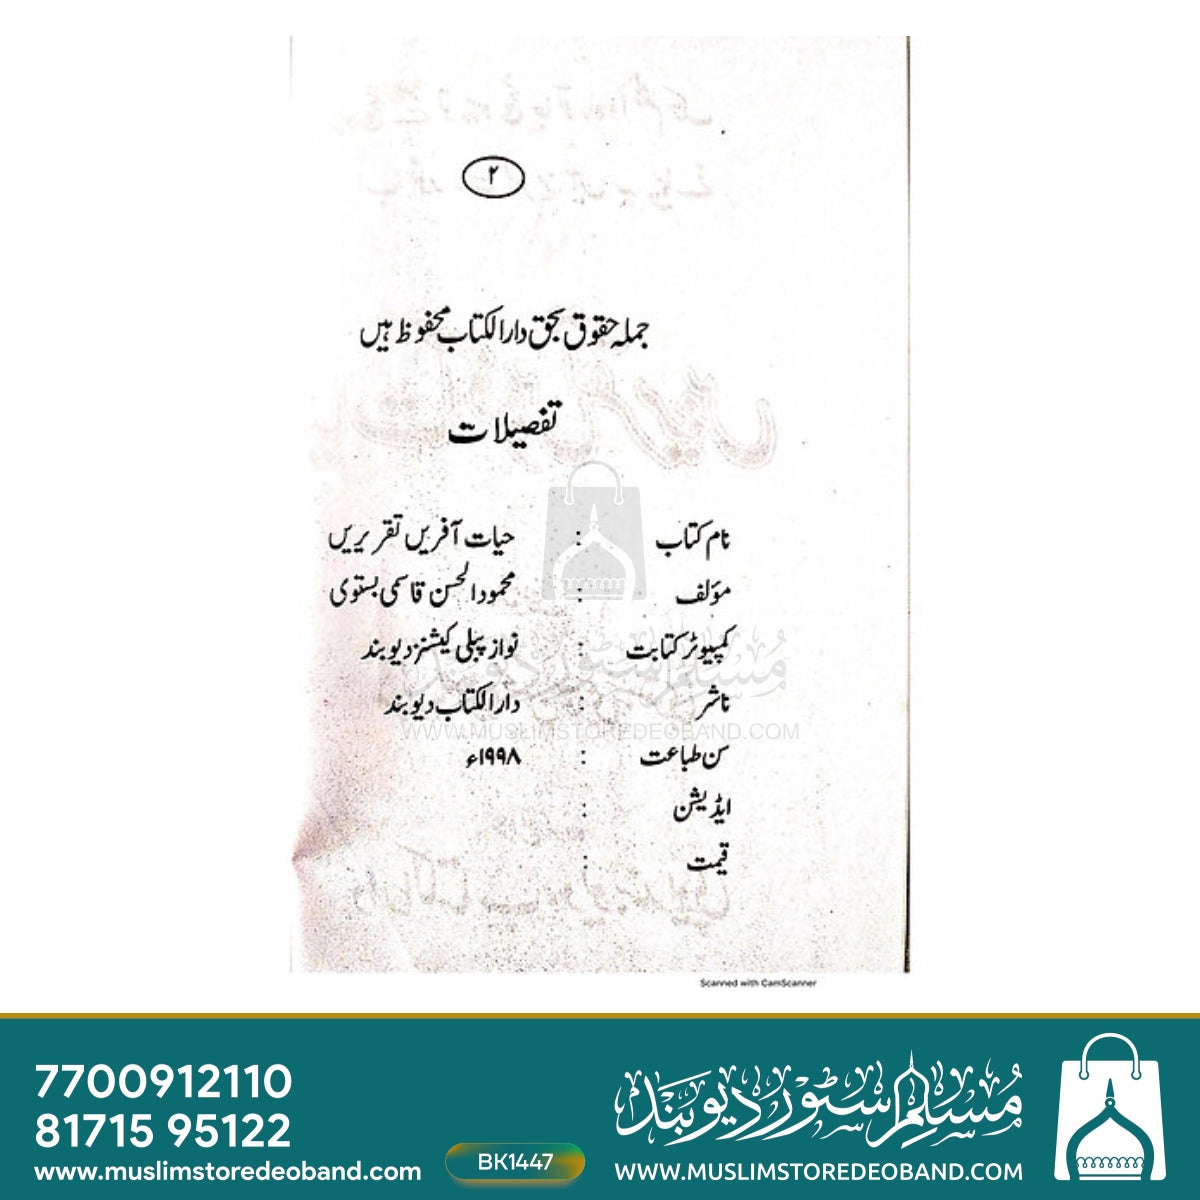 ۲
جملہ حقوق بحق دارالکتاب محفوظ ہیں
تفصیلات
نام کتاب : حیات آفریں تقریریں
مؤلف : محمود الحسن قاسمی بستوی
کمپیوٹر کتابت : نواز پبلی کیشنز دیوبند
ناشر : دارالکتاب دیوبند
سن طباعت : ۱۹۹۸ء
ایڈیشن :
قیمت :
مسلم سٹور دیوبند
WWW.MUSLIMSTOREDEOBAND.COM
Scanned with CamScanner
7700912110
81715 95122
www.muslimstoredeoband.com
BK1447
مسلم سٹور دیوبند
WWW.MUSLIMSTOREDEOBAND.COM